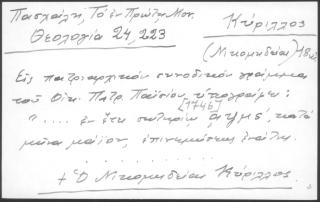 Πασχάλη, Τό ἐν Πρώτῃ Μον.
Θεολογία 24, 223
Κύριλλος
(Νικομηδείας) 18
Εἰς πατριαρχικόν συνοδικόν γράμμα
τοῦ Οἰκ. Πατρ. Παϊσίου, ὑπογραφή:
[1746]
".... ἐν ἔτει σωτηρίῳ αψμς', κατά
μῆνα μάϊον, ἐπινεμήσεως ἐνάτης.
. . . . . . . . . . . .
+ Ὁ Νικομηδείας Κύριλλος.